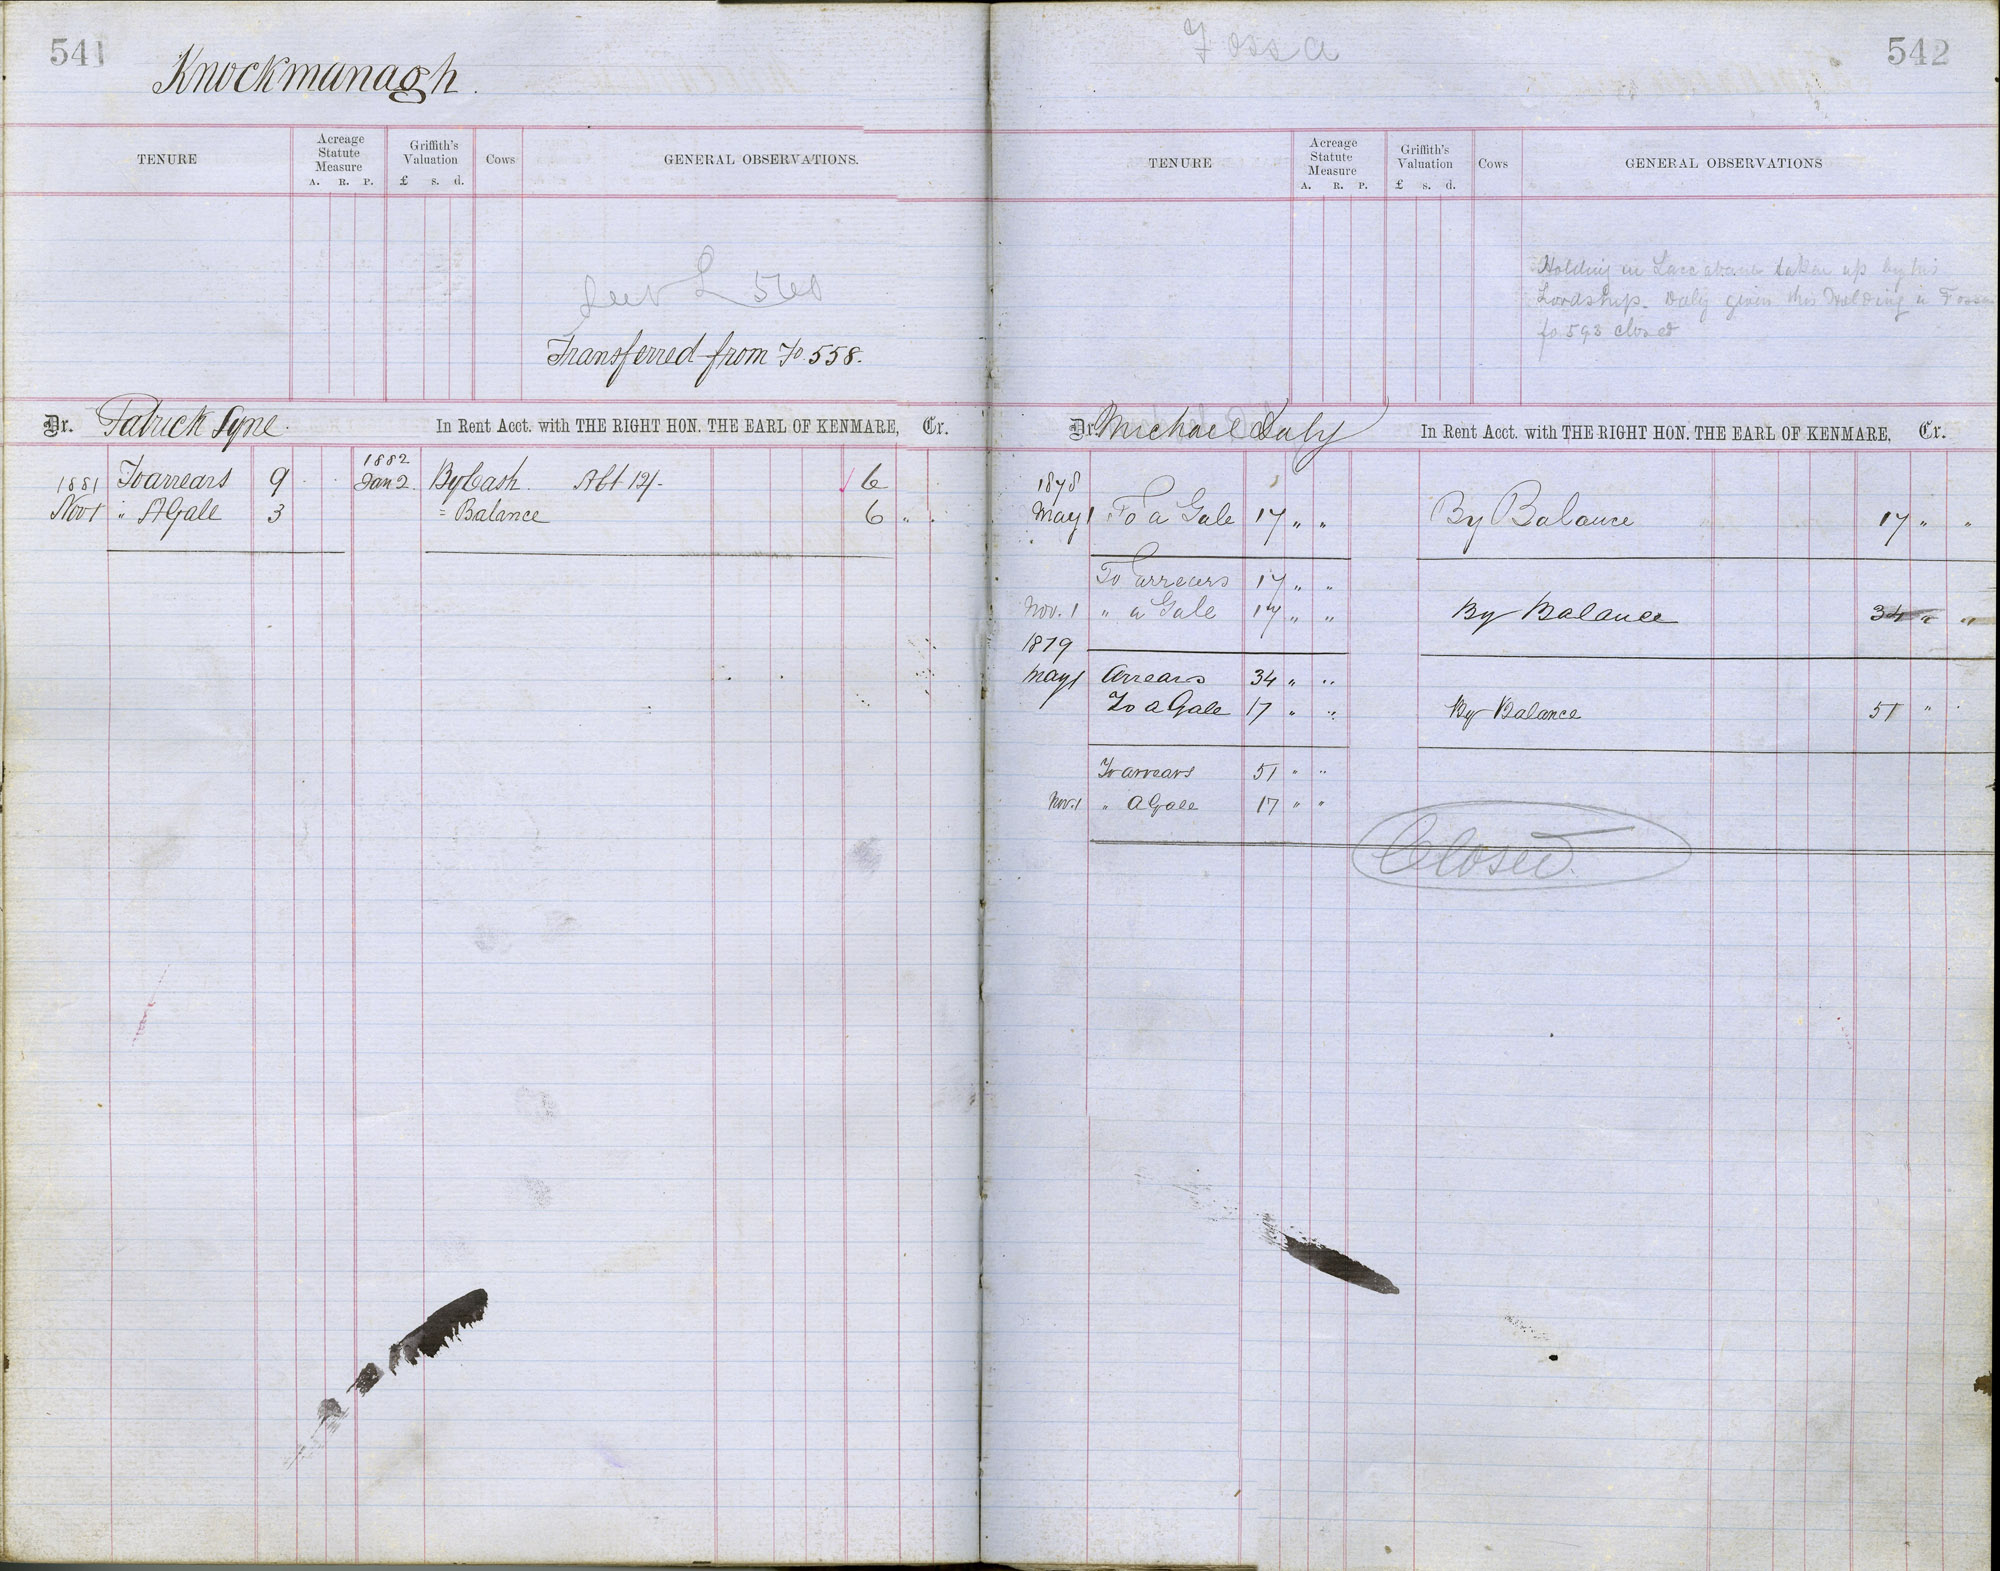 541
Knockmanagh.
TENURE
Acreage Statute Measure
A. R. P.
Griffith's Valuation
£ s. d.
Cows
GENERAL OBSERVATIONS.
560
Transferred from Fo. 558.
Dr. Patrick Lyne. In Rent Acct. with THE RIGHT HON. THE EARL OF KENMARE, Cr.
1882
1881 To arrears 9 Jan 2. By Cash Abt 12/- 6
Nov 1 " A Gale 3 " Balance 6 "
542
Fossa
TENURE
Acreage Statute Measure
A. R. P.
Griffith's Valuation
£ s. d.
Cows
GENERAL OBSERVATIONS
Holding in taken up by his
Lordship. Daly given this Holding in Fossa
fo 593 closed
Dr. Michael Daly In Rent Acct. with THE RIGHT HON. THE EARL OF KENMARE, Cr.
1878
May 1 To a Gale 17 " " By Balance 17 " "
To arrears 17 " "
Nov. 1 " a Gale 17 " " By Balance 34 " "
1879
May 1 Arrears 34 " "
To a Gale 17 " " By Balance 51 "
To arrears 51 " "
Nov. 1 " A Gale 17 " "
Closed.